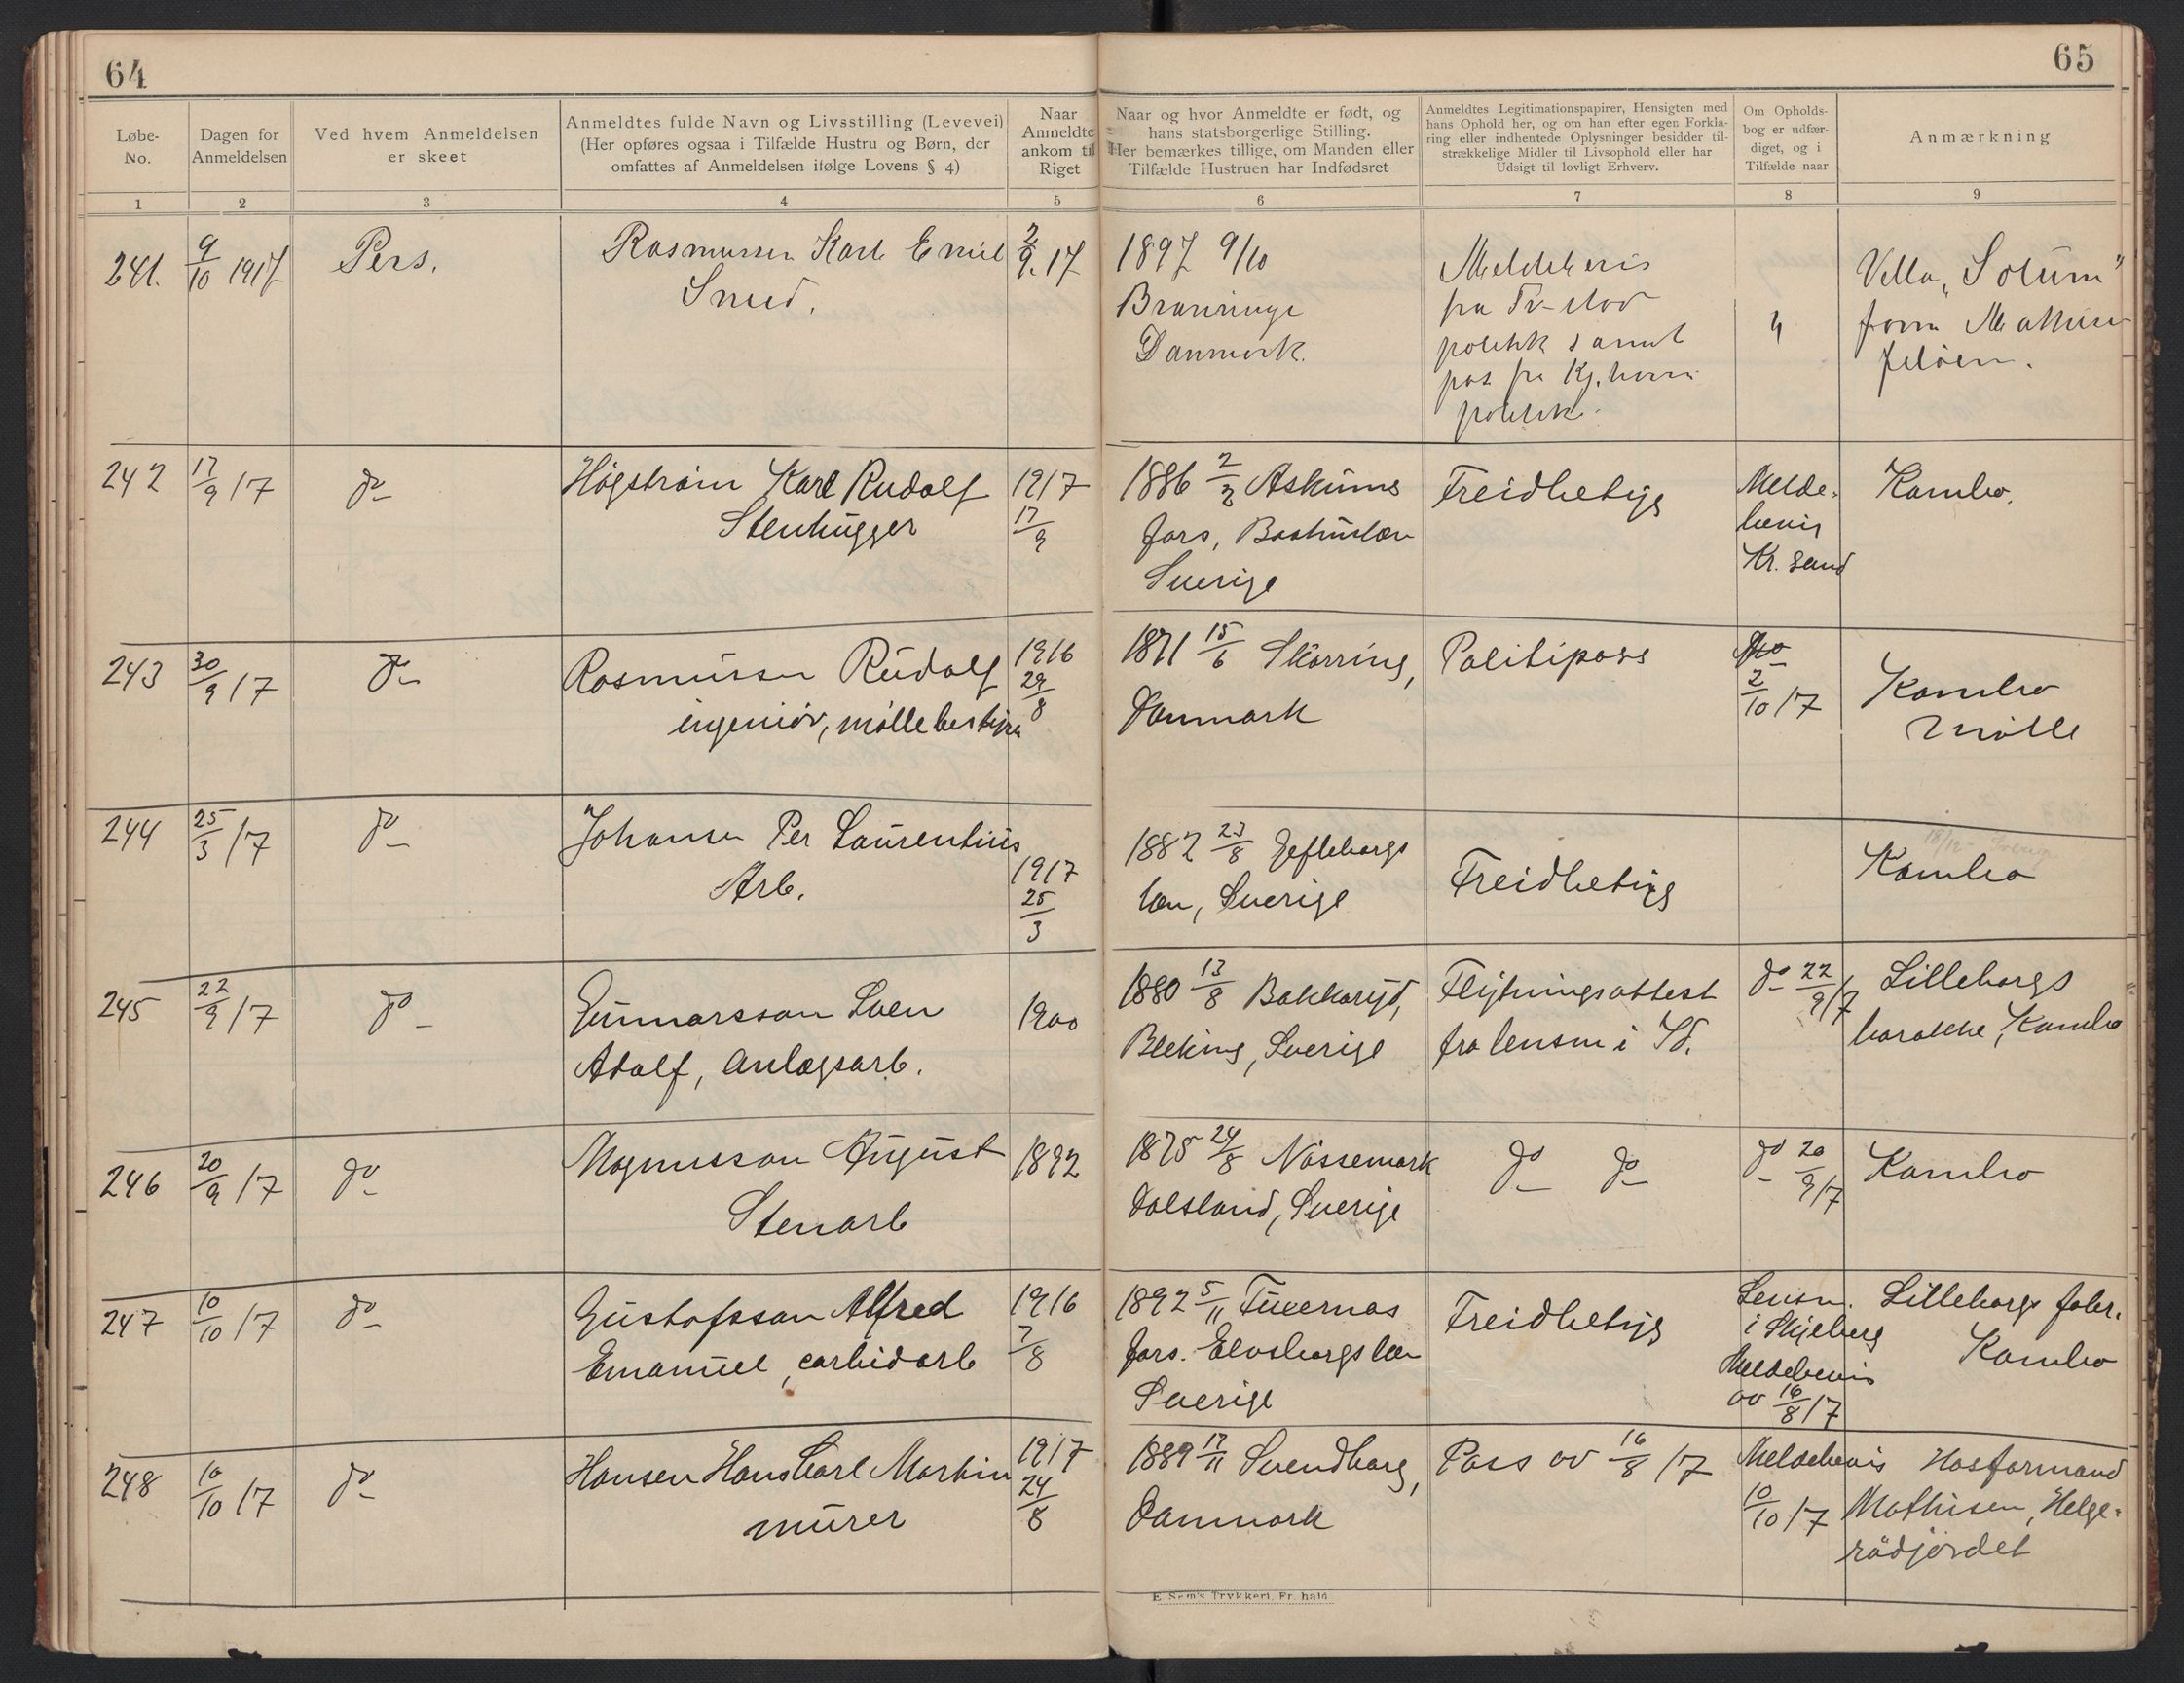 64
65
Løbe-No.
Dagen for Anmeldelsen
Ved hvem Anmeldelsen er skeet
Anmeldtes fulde Navn og Livsstilling (Levevei)
(Her opføres ogsaa i Tilfælde Hustru og Børn, der
omfattes af Anmeldelsen ifølge Lovens § 4)
Naar
Anmeldte
ankom til
Riget
Naar og hvor Anmeldte er født, og
hans statsborgerlige Stilling.
Her bemærkes tillige, om Manden eller
Tilfælde Hustruen har Indfødsret
Anmeldtes Legitimationspapirer, Hensigten med
hans Ophold her, og om han efter egen Forkla-
ring eller indhentede Oplysninger besidder til-
strækkelige Midler til Livsophold eller har
Udsigt til lovligt Erhverv.
Om Opholds-
bog er udfær-
diget, og i
Tilfælde naar
Anmærkning
1 2 3 4 5 6 7 8 9
241. 9/10 1917 Pers.
Rasmussen Karl Emil
Smed.
2/9. 17
1897 9/10
Danmark.
Meldebevis
politik samt
pas fra Kj.havn
politik.
Villa „Solum"
Jeløen.
242 17/9 17 do
Högström Karl Rudolf
Stenhugger
1917
17/9
1886 2/3 Askums
fors, Bashuslæn
Sverige
Freidbetyg
Melde-
bevis
Kr. sand
Kambo.
243 30/9 17 do
Rasmussen Rudolf
ingeniör, möllebestyrer
1916
29/8
1871 15/6 Skörring,
Danmark
Politipass
2/10 17
Kambo
Mölle
244 25/3 17 do
Johansen Per Laurentius
Arb.
1917
25/3
1882 23/8 Gefleborgs
læn, Sverige
Freidbetyg
Kambo
245 22/9 17 do
Gunnarsson Sven
Adolf, anlægsarb.
1900
1880 13/8 Bakkaryd,
Bleking, Sverige
Flytningsattest
fra lensm i Id.
do 22/9 17
Lilleborgs
barakke, Kambo
246 20/9 17 do
Magnusson August
Stenarb
1892
1875 24/8 Nössemark
Dalsland, Sverige
do do
do 20/9 17
Kambo
247 10/10 17 do
Gustafsson Alfred
Emanuel, carbidarb
1916
7/8
1892 5/11
fors. Elvsborgs læn
Sverige
Freidbetyg
Lensm.
i Skjeberg
Meldebevis
av 16/8 17
Lilleborgs fabr.
Kambo
248 10/10 17 do
Hansen Hans Carl Martin
murer
1917
24/8
1889 17/11 Svendborg,
Danmark
Pass av 16/8 17
Meldebevis
10/10 17
Hos formand
Mathisen, Helge-
rödjordet
E. Sem's Trykkeri, Fr.hald